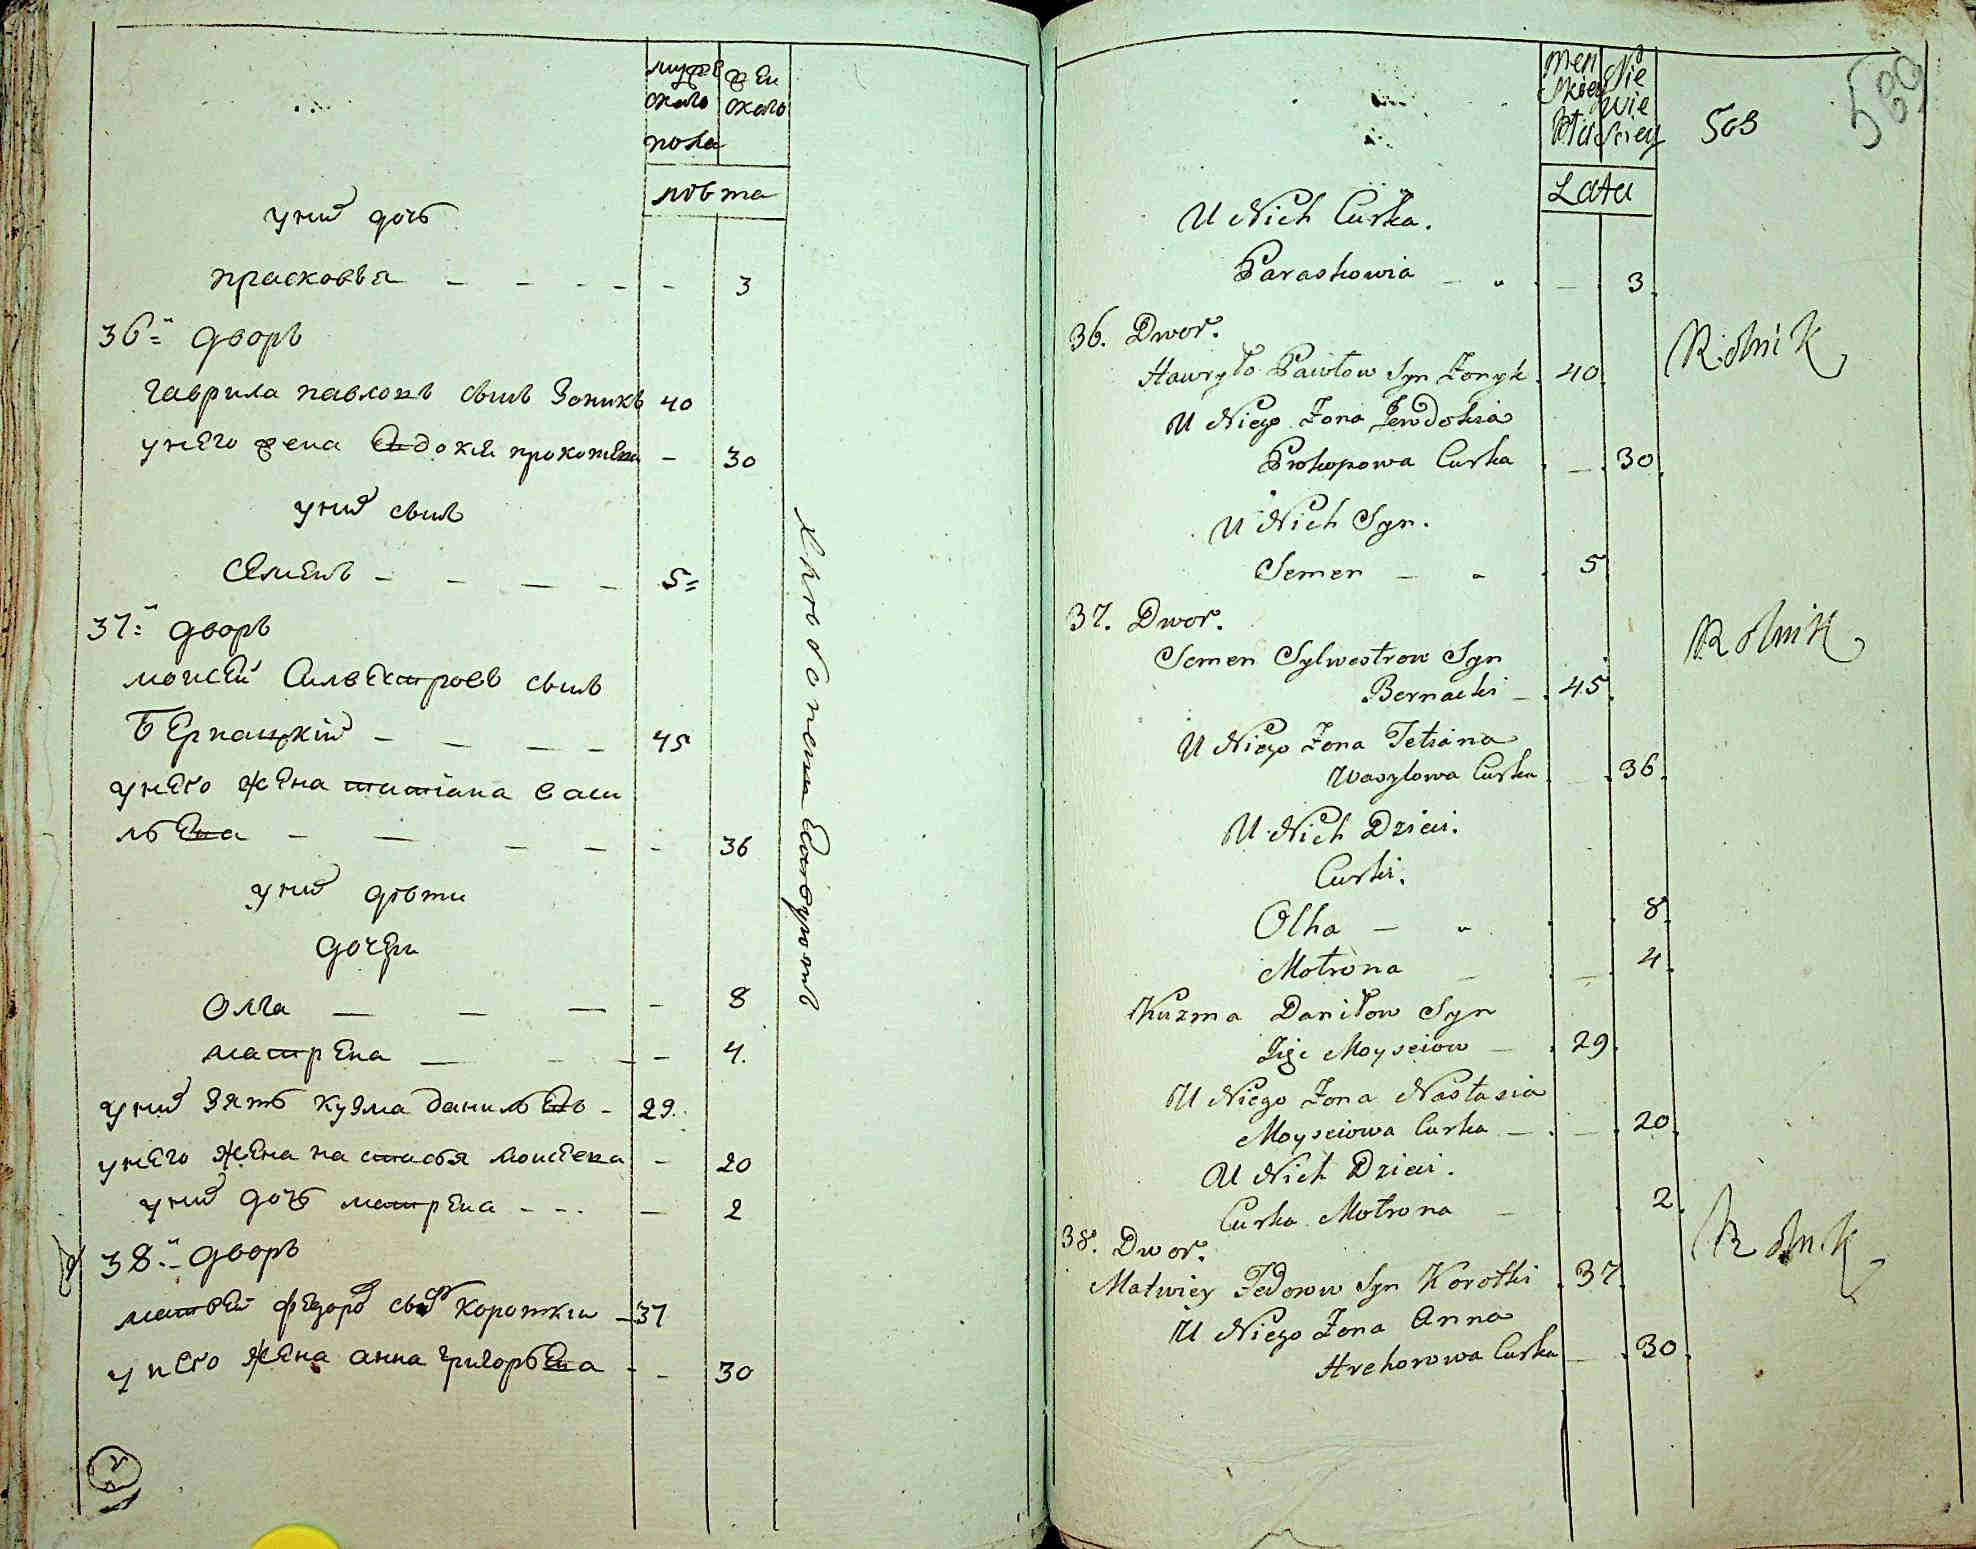 мужеска пола
женскаго
лѣта
у них дочь
прасковья - - - - - 3
36й дворъ
гаврила павловъ сынъ Зоникъ 40
у него жена Евдокия прокопьева - 30
у них сынъ
Семенъ - - - - 5
37й дворъ
моисей Сильвестровъ сынъ
Бернацкий - - - - 45
у него жена титиана васи
льева - - - - - 36
у них дѣти
дочери
Олга - - - - 8
матрена - - - - 4.
у них Зять кузма данильевъ - 29.
у него жена настасья моисеева - 20
у них дочь матрена - - - - 2
38й дворъ
матвей федоров сынъ короткии - 37
у него жена анна григорьева - - 30
хлебопашествуютъ
Men
skiey
Płci
Nie
wie
sciey
Lata
503
589
U Nich Curka.
Paraskowia - - - 3.
36. Dwor.
Rolnik
Hawryło Pawłow Syn Zonyk. 40.
U Niego Zona Jewdokia
Prokopowa Curka - 30.
U Nich Syn.
Semen - - 5
37. Dwor.
Rolnik
Semen Sylwestrow Syn
Bernacki - 45.
U Niego Zona Tetiana
Wasylowa Curka - 36.
U Nich Dzieci.
Curki.
Olha - - 8.
Motrona - - 4.
Kuzma Daniłow Syn
Zięć Moyseiow - 29.
U Niego Zona Nastasia
Moyseiowa Curka - - 20.
U Nich Dzieci.
Curka Motrona - 2.
38. Dwor.
Rolnik
Matwiey Fedorow Syn Korotki . 37.
U Niego Zona Anna
Hrehorowa Curka - . 30.